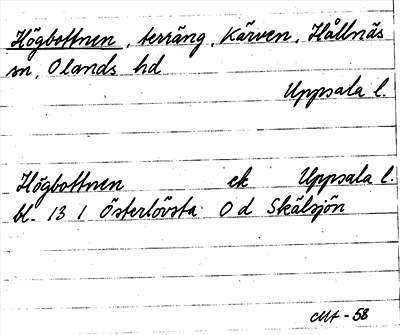 Högbottnen, terräng, Kärven, Hållnäs
sn, Olands hd
Uppsala l.
Högbottnen ek Uppsala l.
bl. 13 I Österlövsta 0 d Skälsjön
-58